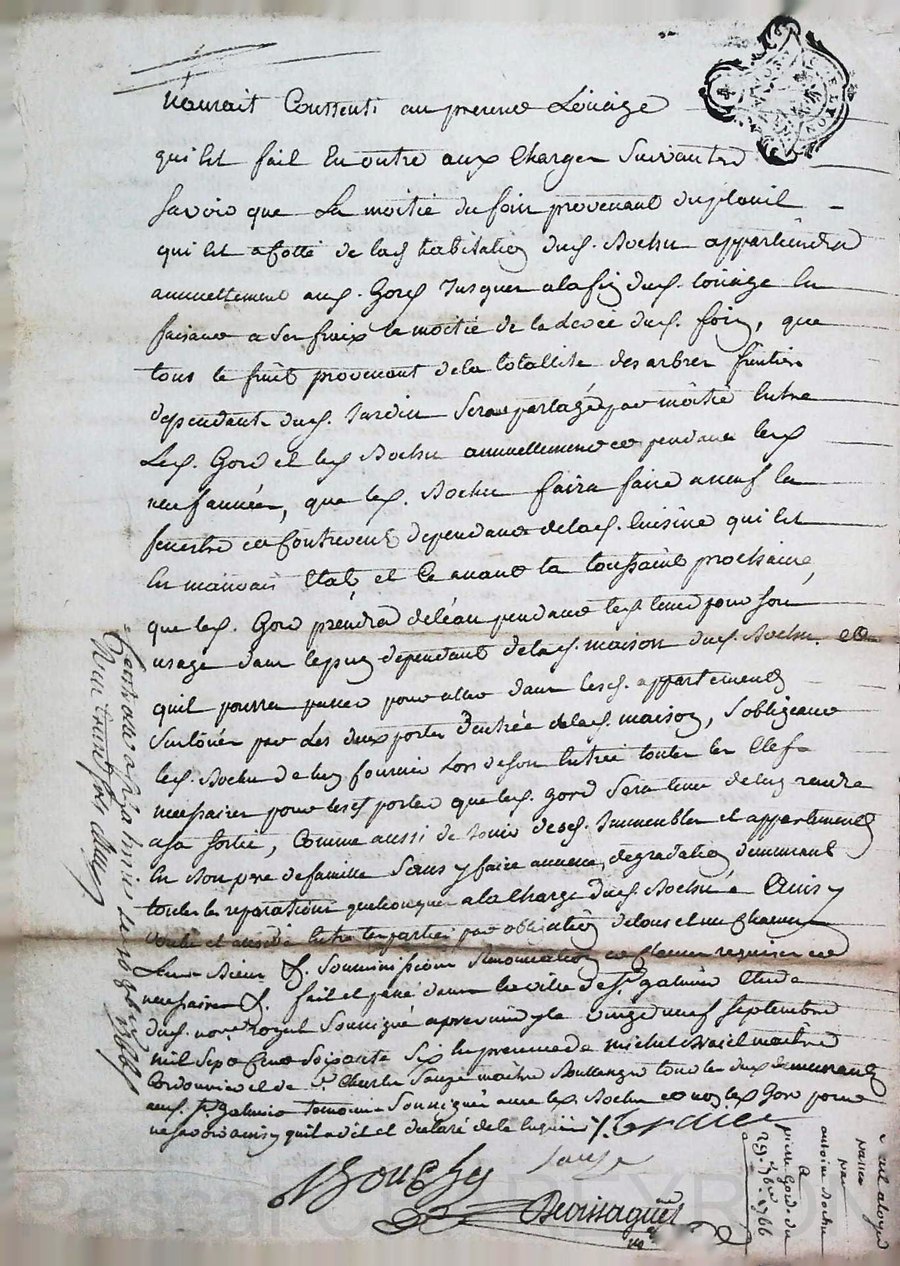 n'aurait Conssenti au présent Loüage
qui Est fait En outre aux Charges Suivantes
Savoir que La moitié du foin provenant du
qui Est a Cotté de lad habitation dud. Rochu appartiendra
annuellement aud. Gord Jusques a la fin dud. loüage En
faisant a Ses fraix la moitié de la levée dud. foin, que
tous le fruit provenant de la totallité des arbres fruitiers
dependant dud. Jardin Sera partagé par moitié Entre
Led. Gord et led Rochu annuellement et pendant lesd
neuf années, que led. Rochu faira faire a neuf la
fenestre et Contrevent dependant de lad. Cuisine qui Est
En mauvais Etat, et Ce avant la toussaint prochaine,
que led. Gord prendra de l'eau pendant led tems pour son
usage dans le puy dependant de lad. maison dud. Rochu. et
quil pourra passer pour aller dans lesd. appartements
par Les deux portes D'entrée de lad. maison, S'obligeant
led. Rochu de luy fournir Lors de son Entrée touttes les Clefs
necessaires pour lesd portes que led. Gord Sera tenu de luy rendre
a sa sortie, Comme aussi de Jouir desd. Immeubles et appartements
En Bon pere de famille Sans y faire aucune degradation demeurant
touttes les reparations quelconques a la Charge dud. Rochu Ainsy
voulu et accordé Entre les parties par obligation de tous et un Chacun
Leurs Biens &. Soumissions Renonciations et Clauses requises et
necessaires &. fait et passé dans la ville de St galmier Etude
dud. nore Royal Soussigné apres midy le vingt neuf septembre
mil Sept Cent Soixante Six En presence de michel maitre
Cordonnier et de Sr Charles Sauze maitre Boullanger tous les deux demeurants
aud. St galmier temoins Soussignés avec led. Rochu et non led Gord pour
ne savoir ainsy quil a dit et declaré de le requis /.
Sauze
Controllé a St galmier
antoine Rochu
A
pierre Gord du
29. 7bre 1766
Pascal CHAPEYRON